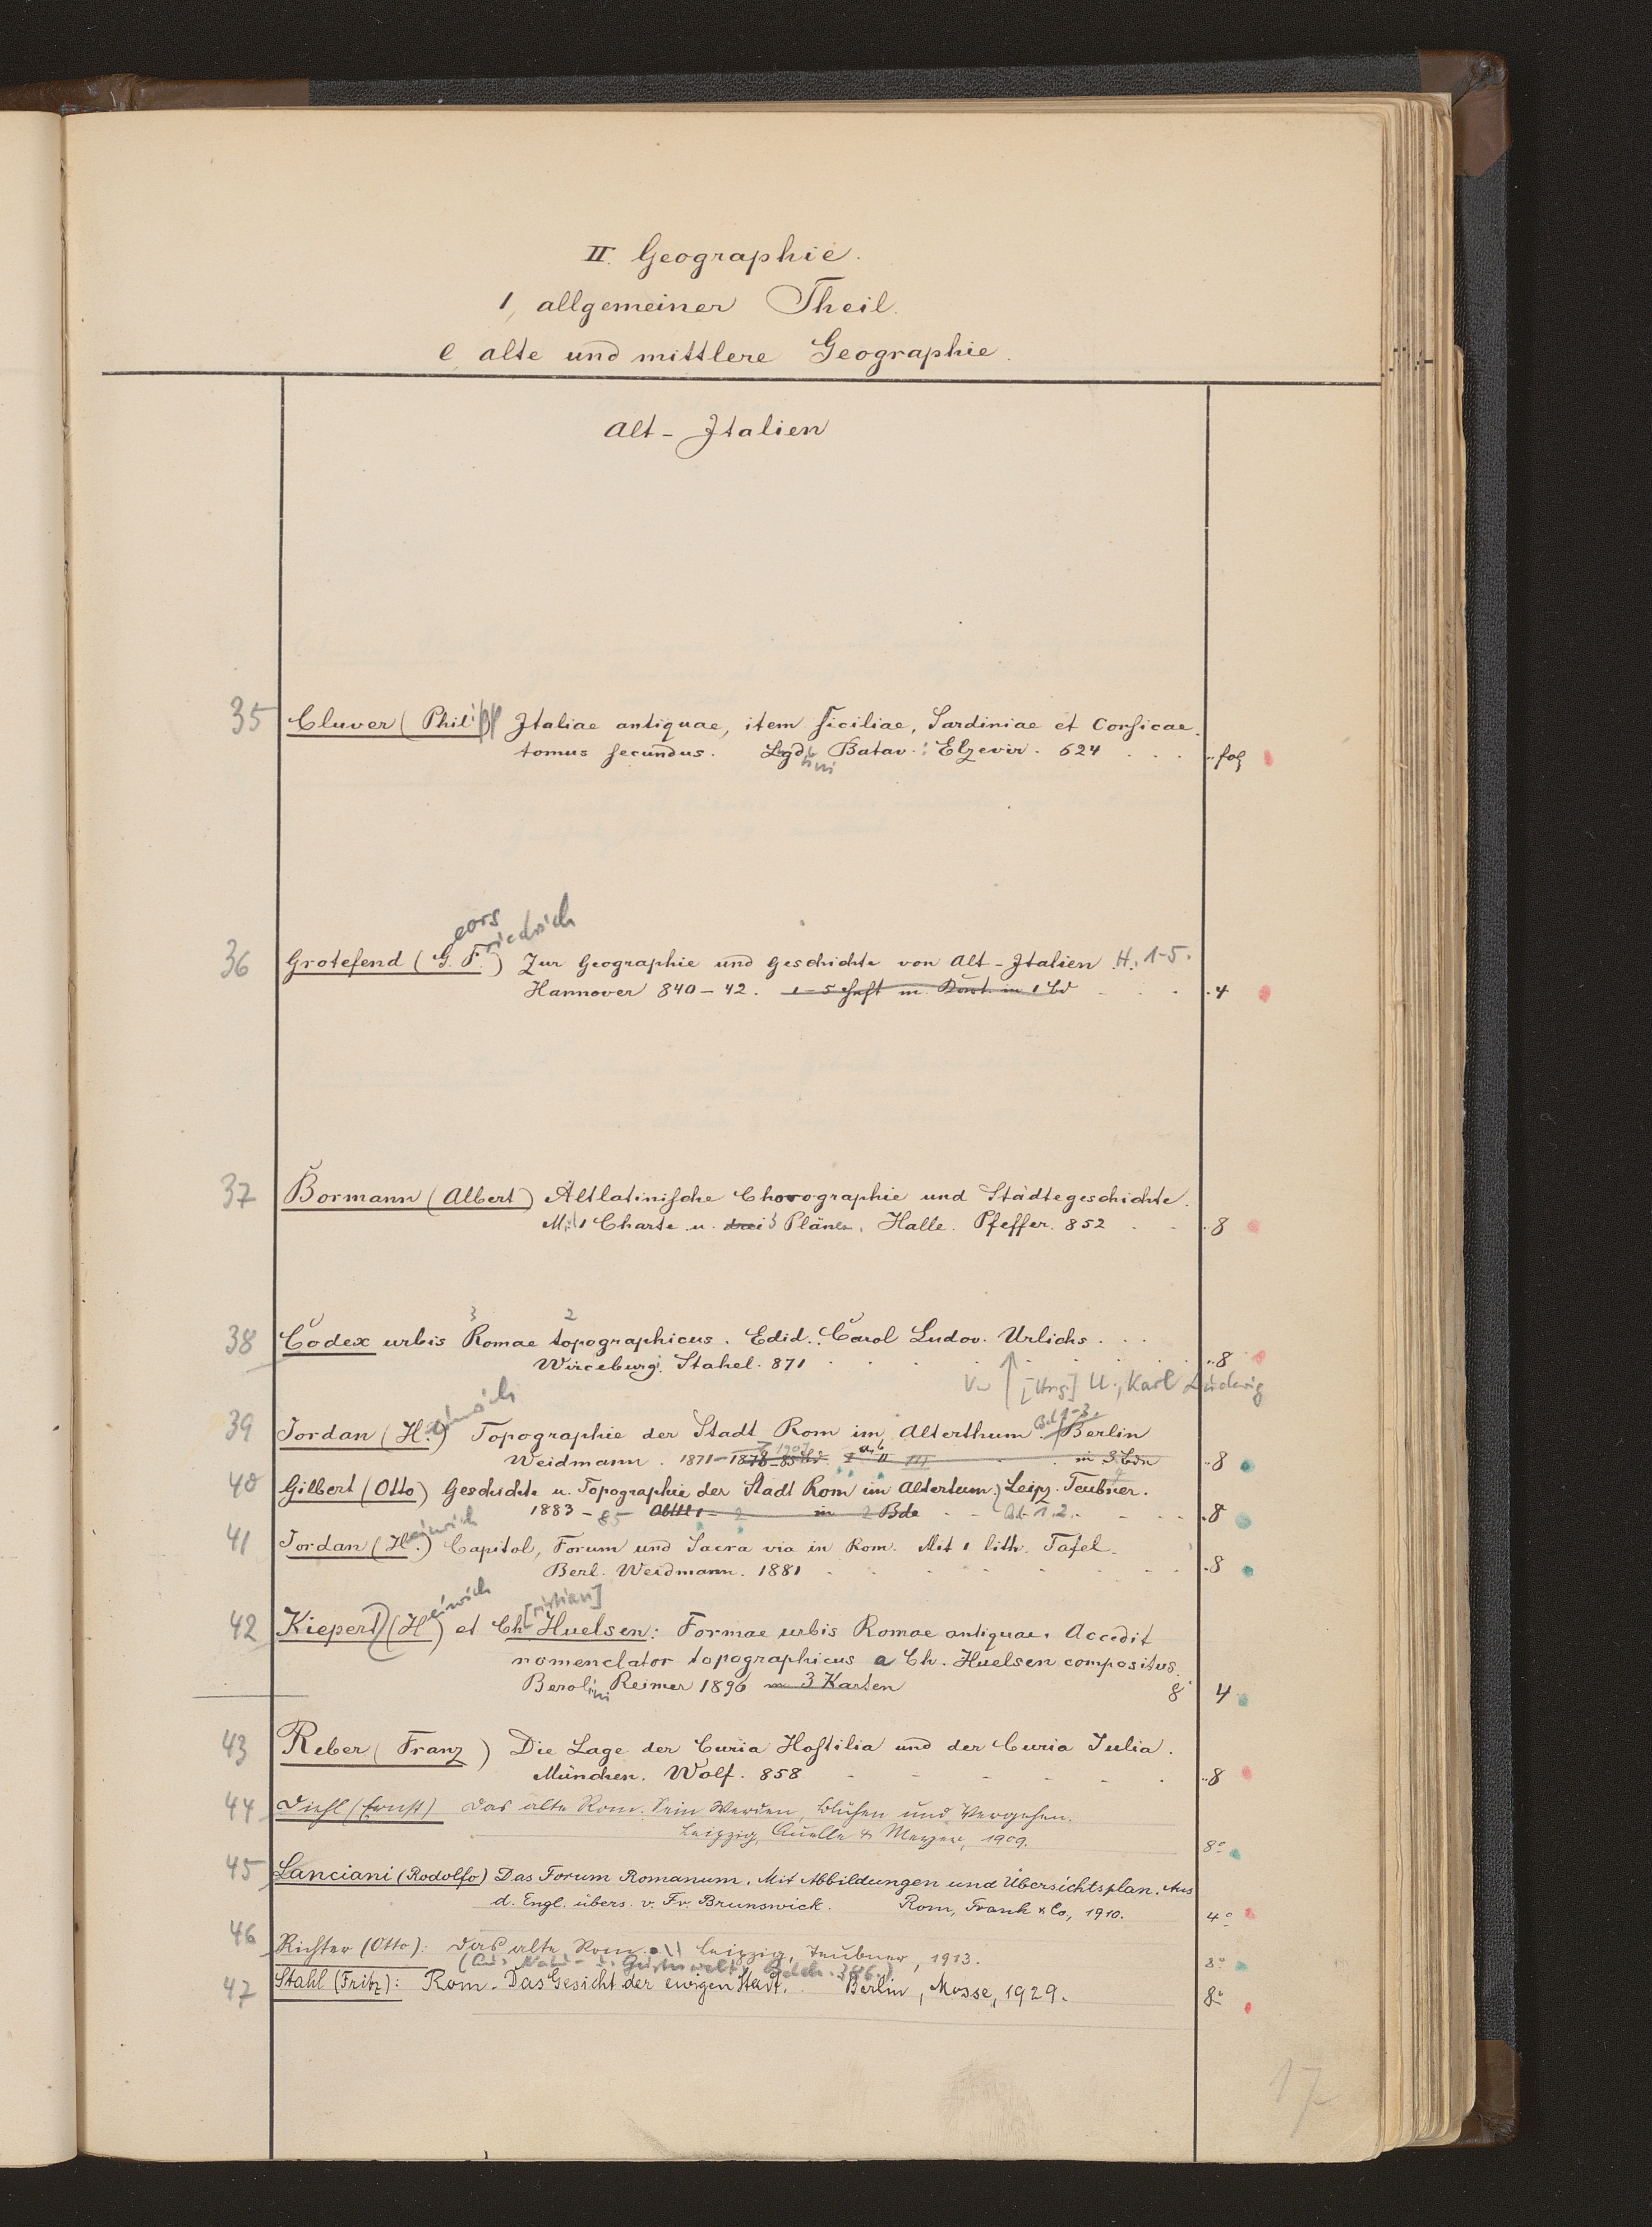 II. Geographie.
1, allgemeiner Theil.
e alte und mittlere Geographie.
Alt-Italien
35 Cluver (Philipp Italiae antiquae, item Siciliae, Sardiniae et Corsicae.
tomus secundus. Lgd. Batav.: Elzevir. 624 . . . fol
eorg riedrich
36 Grotefend (G. F.) Zur Geographie und Geschichte von Alt-Italien H. 1-5.
Hannover 840-42. 1-5 Heft in 1 Bd . . . 4
37 Bormann (Albert) Altlatinische Chorographie und Städtegeschichte.
Mit 1 Charte u. drei 3 Plänen. Halle. Pfeffer. 852 . . 8
3 2
38 Codex urbis Romae topographicus. Edid. Carol Ludov. Urlichs . . .
Wirceburgi. Stahel. 871 . . . . . . 8
[Hrsg.] U., Karl Ludwig
einrich
39 Jordan (H.) Topographie der Stadt Rom im Alterthum. Bd 1-3. Berlin
Weidmann. 1871-1878-85 1907 a, b II III in 3 Bdn 8
40 Gilbert (Otto) Geschichte u. Topographie der Stadt Rom im Altertum. Leipz. Teubner.
1883-85 Abtl 1-2 in 2 Bde - - Bd. 1.2. - - - 8
einrich
41 Jordan (H.) Capitol, Forum und Sacra via in Rom. Mit 1 lith. Tafel.
Berl. Weidmann. 1881 . . . . . . 8
einrich [ristian]
42 Kiepert (H) et Ch Huelsen: Formae urbis Romae antiquae. Accedit
nomenclator topographicus a Ch. Huelsen compositus.
Berolini Reimer 1896 m 3 Karten 8 4
43 Reber (Franz) Die Lage der Curia Hostilia und der Curia Julia.
München. Wolf. 858 - - - - - . 8
44 Diehl (Ernst) Das alte Rom. Sein Werden, Blühen und Vergehen.
Leipzig, Quelle & Meyer, 1909. 8°
45 Lanciani (Rodolfo) Das Forum Romanum. Mit Abbildungen und Übersichtsplan. Aus
d. Engl. übers. v. Fr. Brunswick. Rom, Frank & Co, 1910. 4°
46 Richter (Otto): Das alte Rom. Leipzig, Teubner, 1913. 8°
(Aus Natur- u. Geisteswelt. Bdch. 386.)
47 Stahl (Fritz): Rom. Das Gesicht der ewigen Stadt. Berlin, Mosse, 1929. 8°
17